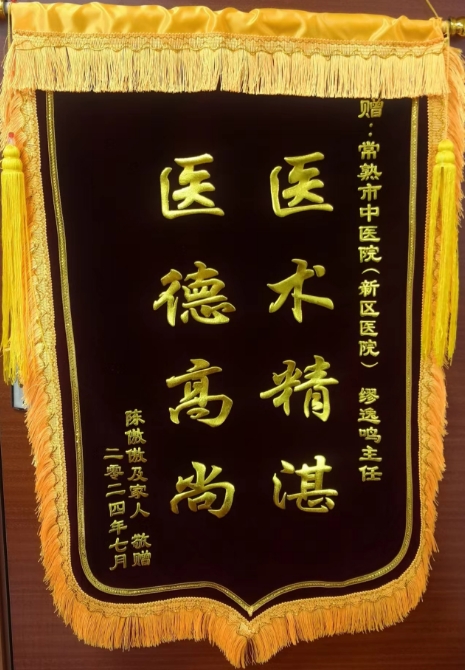 赠：常熟市中医院（新区医院） 缪逸鸣主任
医术精湛
医德高尚
陈傲傲及家人 敬赠
二零二四年七月